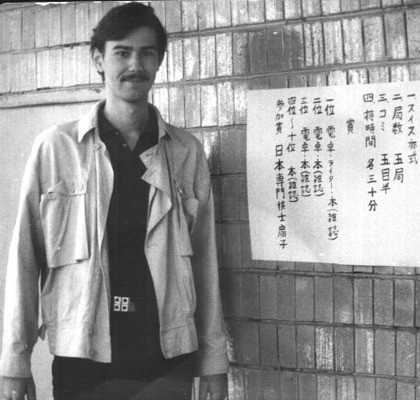 一.スイス方式
二.局数 五局
三.コミ 五目半
四.持時間 各三十分
賞
一位 電卓・ライター・本(雑誌)
二位 電卓・本(雑誌)
三位 電卓・本(雑誌)
四位〜十位 本(雑誌)
参加賞 日本専門棋士扇子